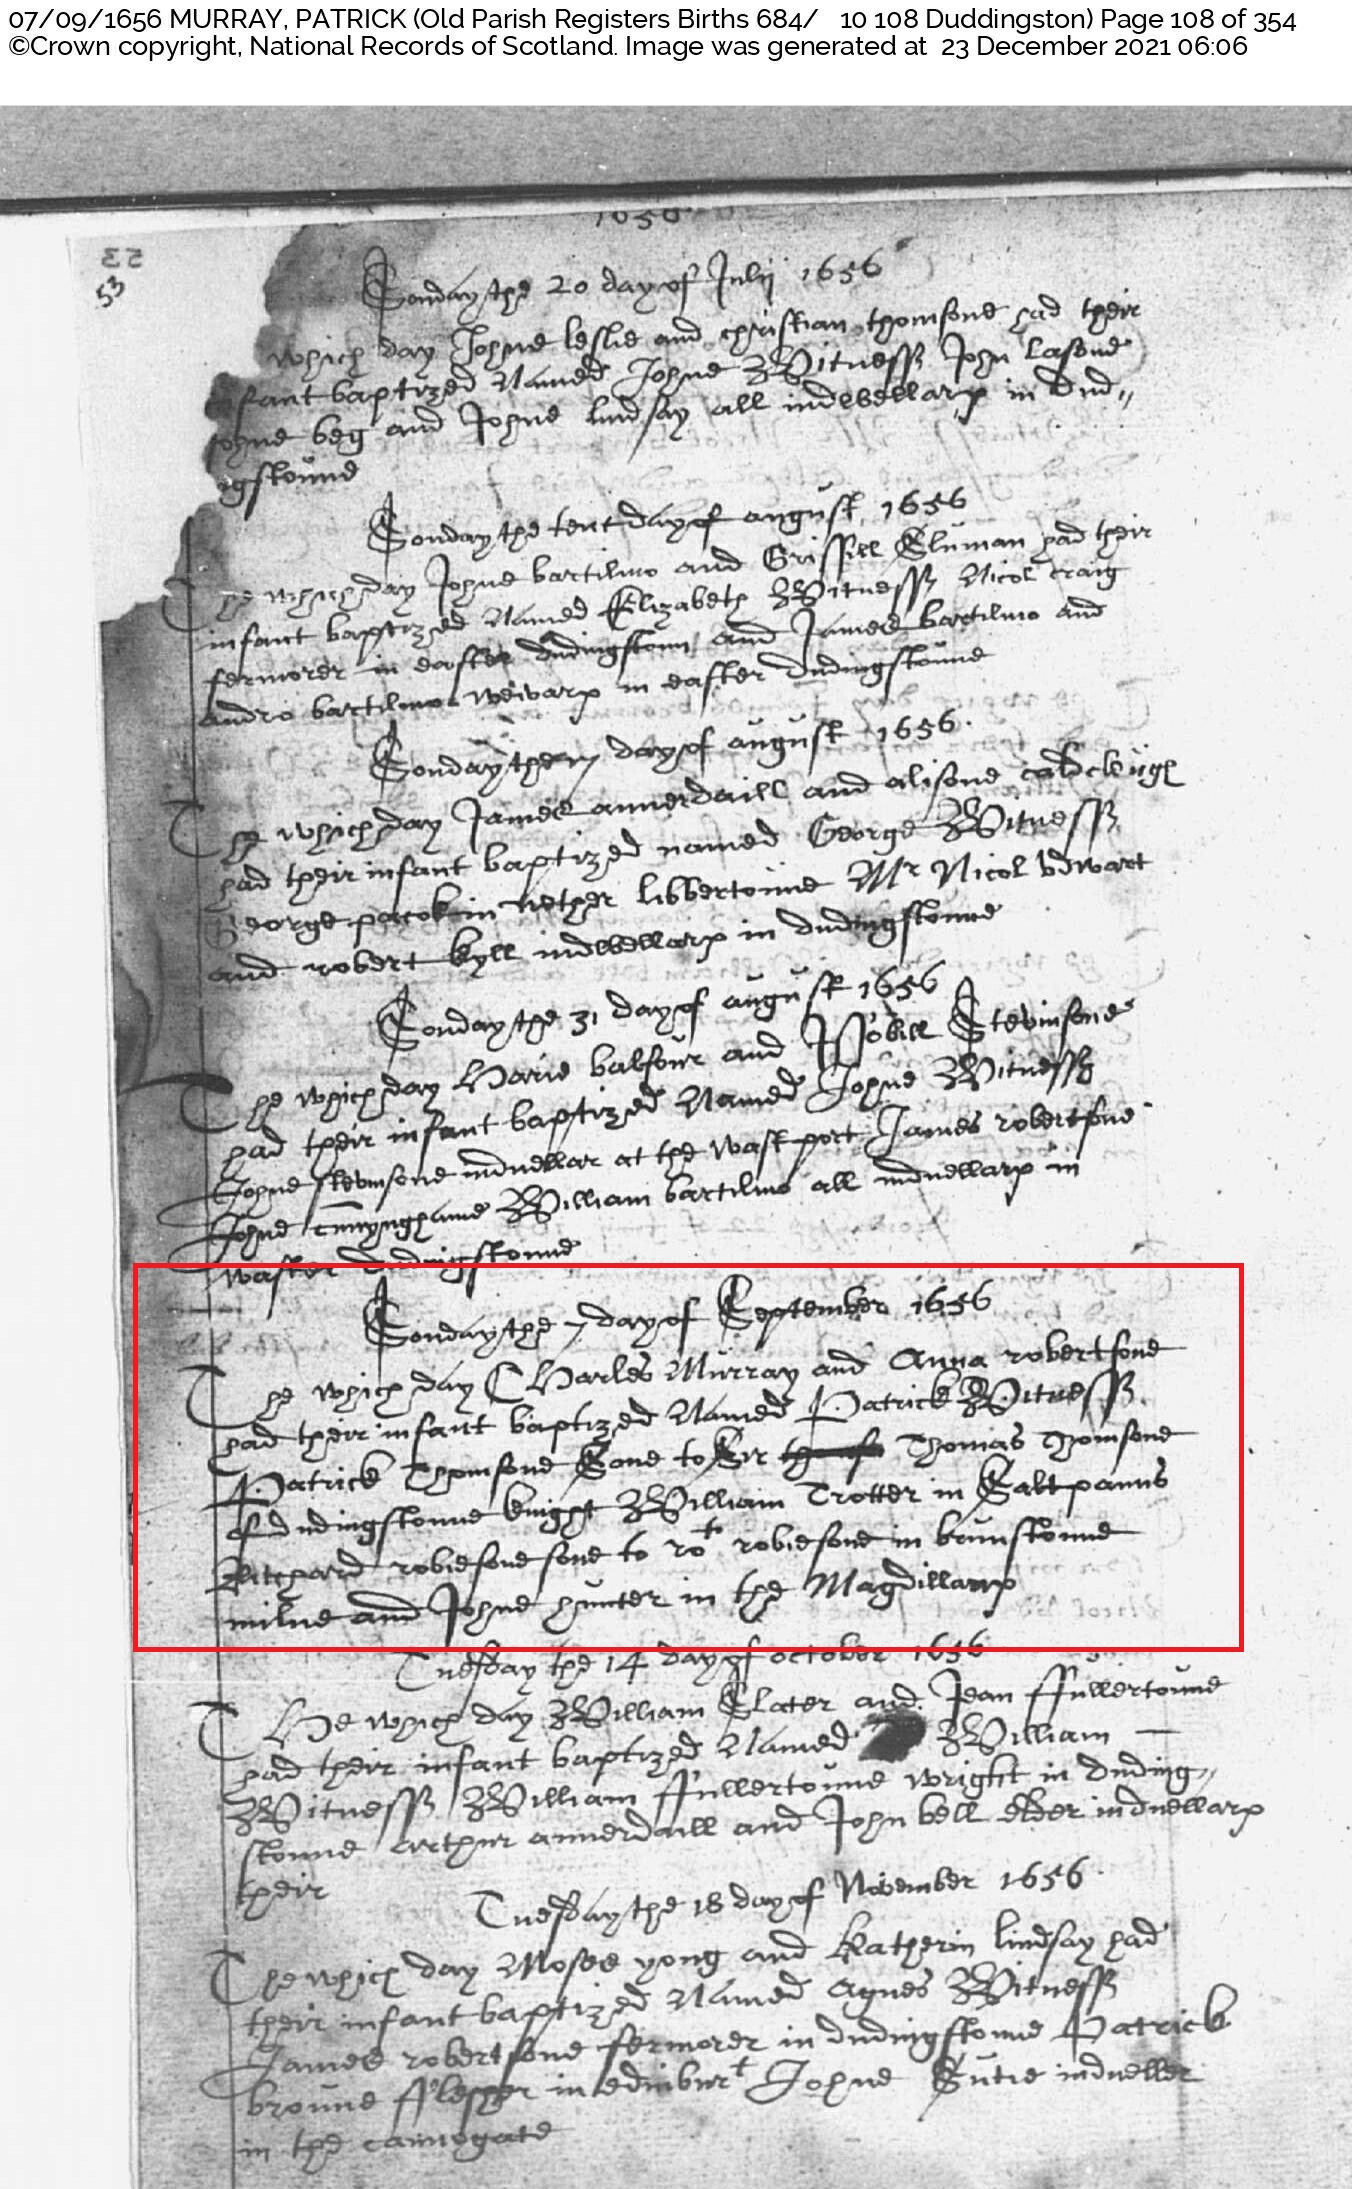 07/09/1656 MURRAY, PATRICK (Old Parish Registers Births 684/ 10 108 Duddingston) Page 108 of 354
©Crown copyright, National Records of Scotland. Image was generated at 23 December 2021 06:06
1656
53
53
Sonday the 20 day of Julij 1656
which day Johne leslie and christian thomsone had their
fant baptized Named Johne Witness John Lasone
Johne beg and Johne lindsay all indwellars in Dud„
gstoune
Sonday the tent day of august 1656
The which day Johne bartilmo and Grissill Sluman had their
infant baptized Named Elizabeth Witness Nicol Craig
fermorer in easter dudingstoun and James bartilmo and
andro bartilmo weivars in easter dudingstoune
Sonday the 17 day of august 1656
The which day James annerdaill and alisone caldcleugh
had their infant baptized named George Witness
George pacok in nether libbertoune Mr Nicol Vdwart
and robert kyll indwellars in dudingstoune
Sonday the 31 day of august 1656
The which day Harie balfour and Issobill Stevinsone
had their infant baptized Named Johne Witness
Johne stevinsone induellar at the wast port James robertsone
Johne cunnynghame William bartilmo all induellars in
waster dudingstoune
Sonday the 7 day of September 1656
The which day Charles Murray and Anna robertsone
had their infant baptized Named Patrick Witness
Patrick Thomsone Sone to Sir Thomas Thomsone
of dudingstoune knight William Trotter in Saltpanns
Ritchard robiesone sone to rot robiesone in brunstoune
milne and Johne hunter in the Magdillans
Tuesday the 14 day of october 1656
The which day William Slater and Jean ffullertoune
had their infant baptized Named William —
Witness William ffullertoune wright in duding„
stoune Arthur annerdaill and John bell elder induellars
their
Tuesday the 18 day of November 1656
The which day Moses yong and Katherin lindsay had
their infant baptized Named Agnes Witness
James robertsone fermorer in dudingstoune Patrick
broune fflesher in edinburt Johne Sutie indueller
in the cannogate